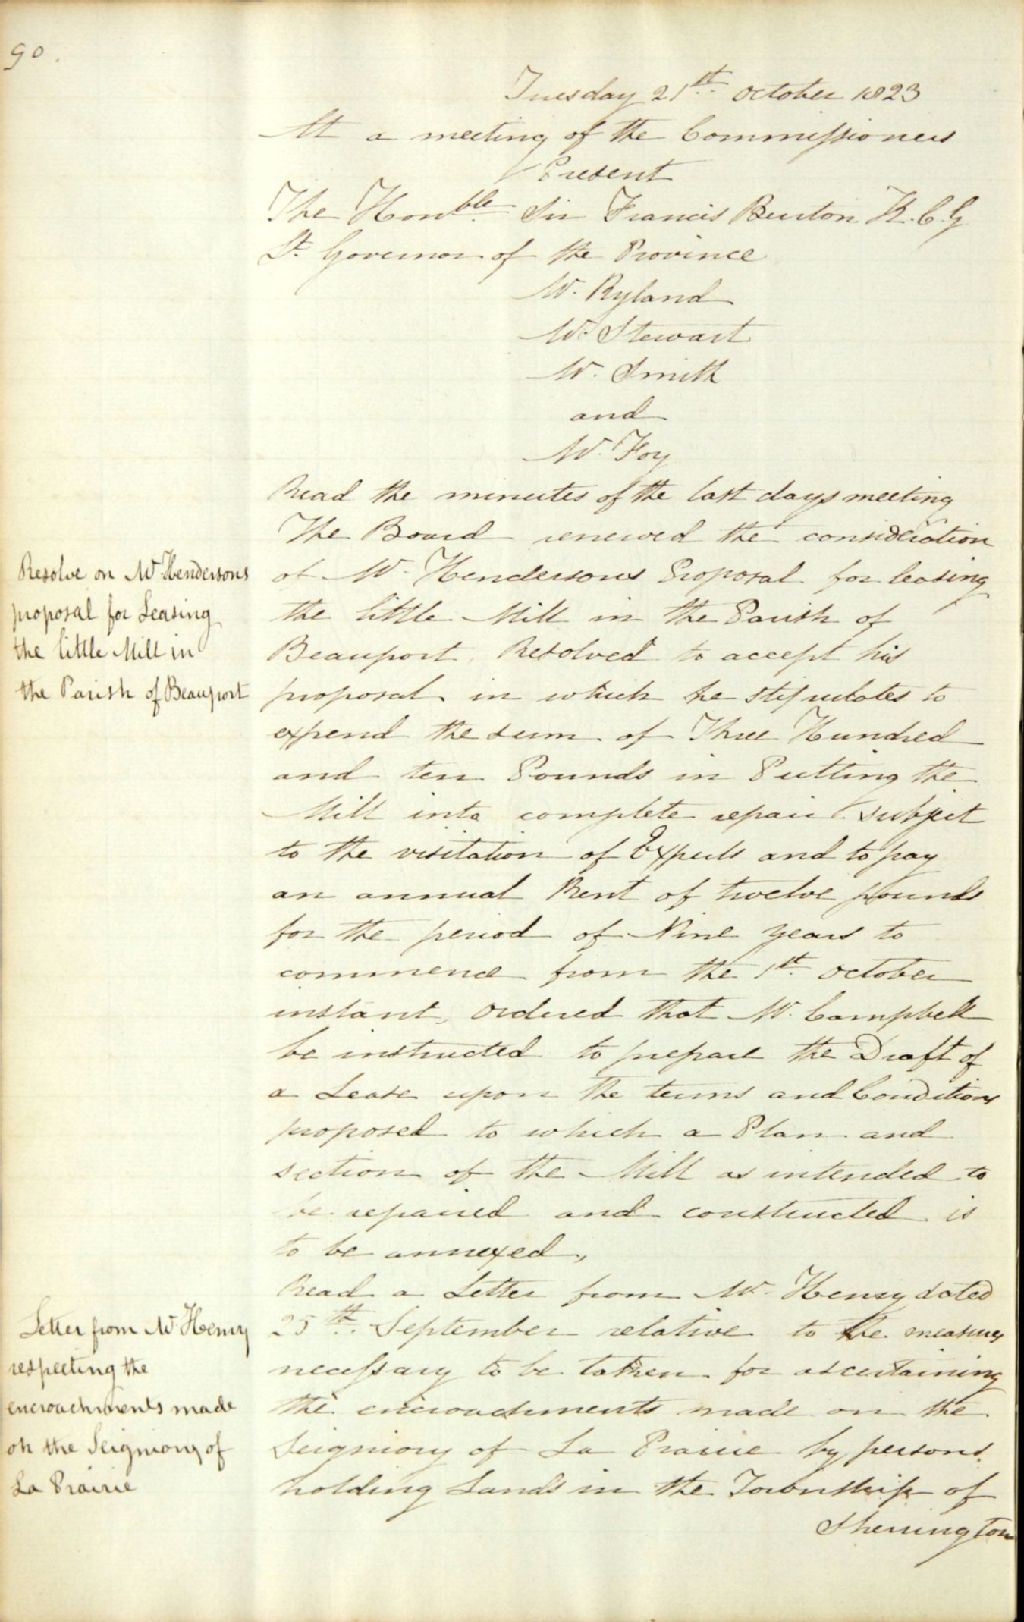 90.
Tuesday 21st October 1823
At a meeting of the Commissioners
Present
The Honble Sir Francis Burton K.C.G
Lt Governor of the Province
Mr. Ryland
Mr. Stewart
Mr. Smith
and
Mr. Foy
Read the minutes of the last days meeting
The Board renewed the consideration
Resolve on Mr Hendersons
proposal for Leasing
the little Mill in
the Parish of Beauport
of Mr. Hendersons Proposal for leasing
the little Mill in the Parish of
Beauport. Resolved to accept his
proposal in which he stipulates to
expend the sum of Three Hundred
and ten Pounds in Putting the
Mill into complete repair subject
to the visitation of Experts and to pay
an annual Rent of twelve pounds
for the period of Nine years to
commence from the 1st October
instant, ordered that Mr. Campbell
be instructed to prepare the Draft of
a Lease upon the terms and Conditions
proposed to which a Plan and
section of the Mill as intended to
be repaired and constructed is
to be annexed,
Read a Letter from Mr. Henry dated
Letter from Mr Henry
respecting the
encroachments made
on the Seigniory of
La Prairie
25th September relative to the measures
necessary to be taken for ascertaining
the encroachments made on the
Seigniory of La Prairie by persons
holding Lands in the Township of
Sherrington